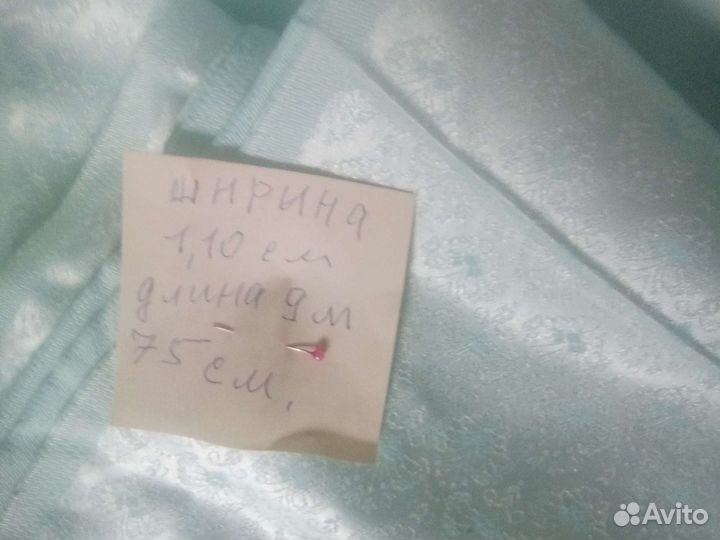 ширина
1,10 см
длина 9 м
75 см.
Avito